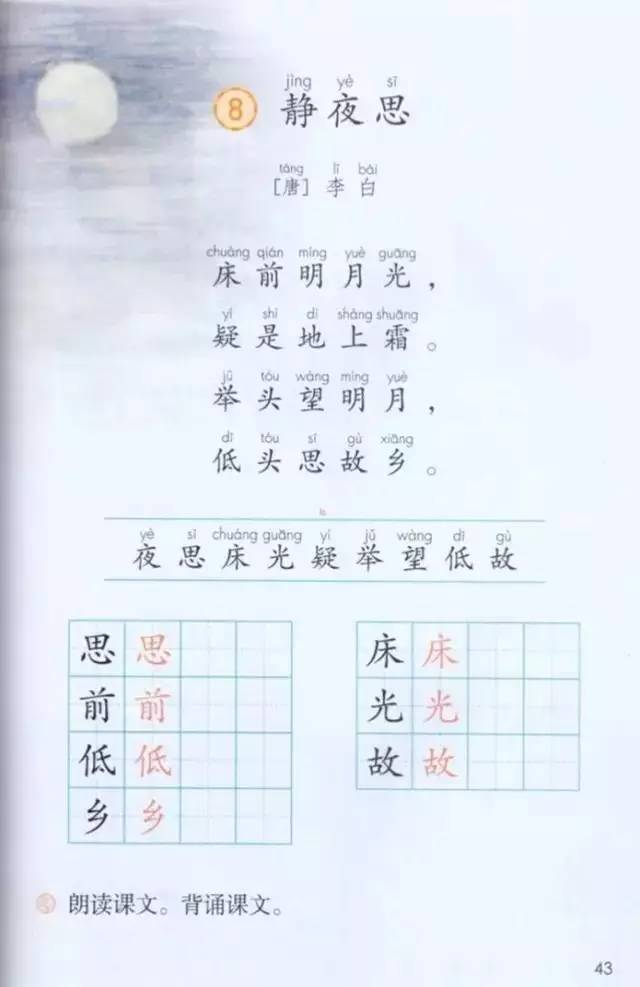 jìng yè sī
8 静夜思
táng lǐ bái
[唐] 李白
chuáng qián míng yuè guāng
床前明月光，
yí shì dì shàng shuāng
疑是地上霜。
jǔ tóu wàng míng yuè
举头望明月，
dī tóu sī gù xiāng
低头思故乡。
yè sī chuáng guāng yí jǔ wàng dī gù
夜思床光疑举望低故
思思
前前
低低
乡乡
床床
光光
故故
朗读课文。背诵课文。
43